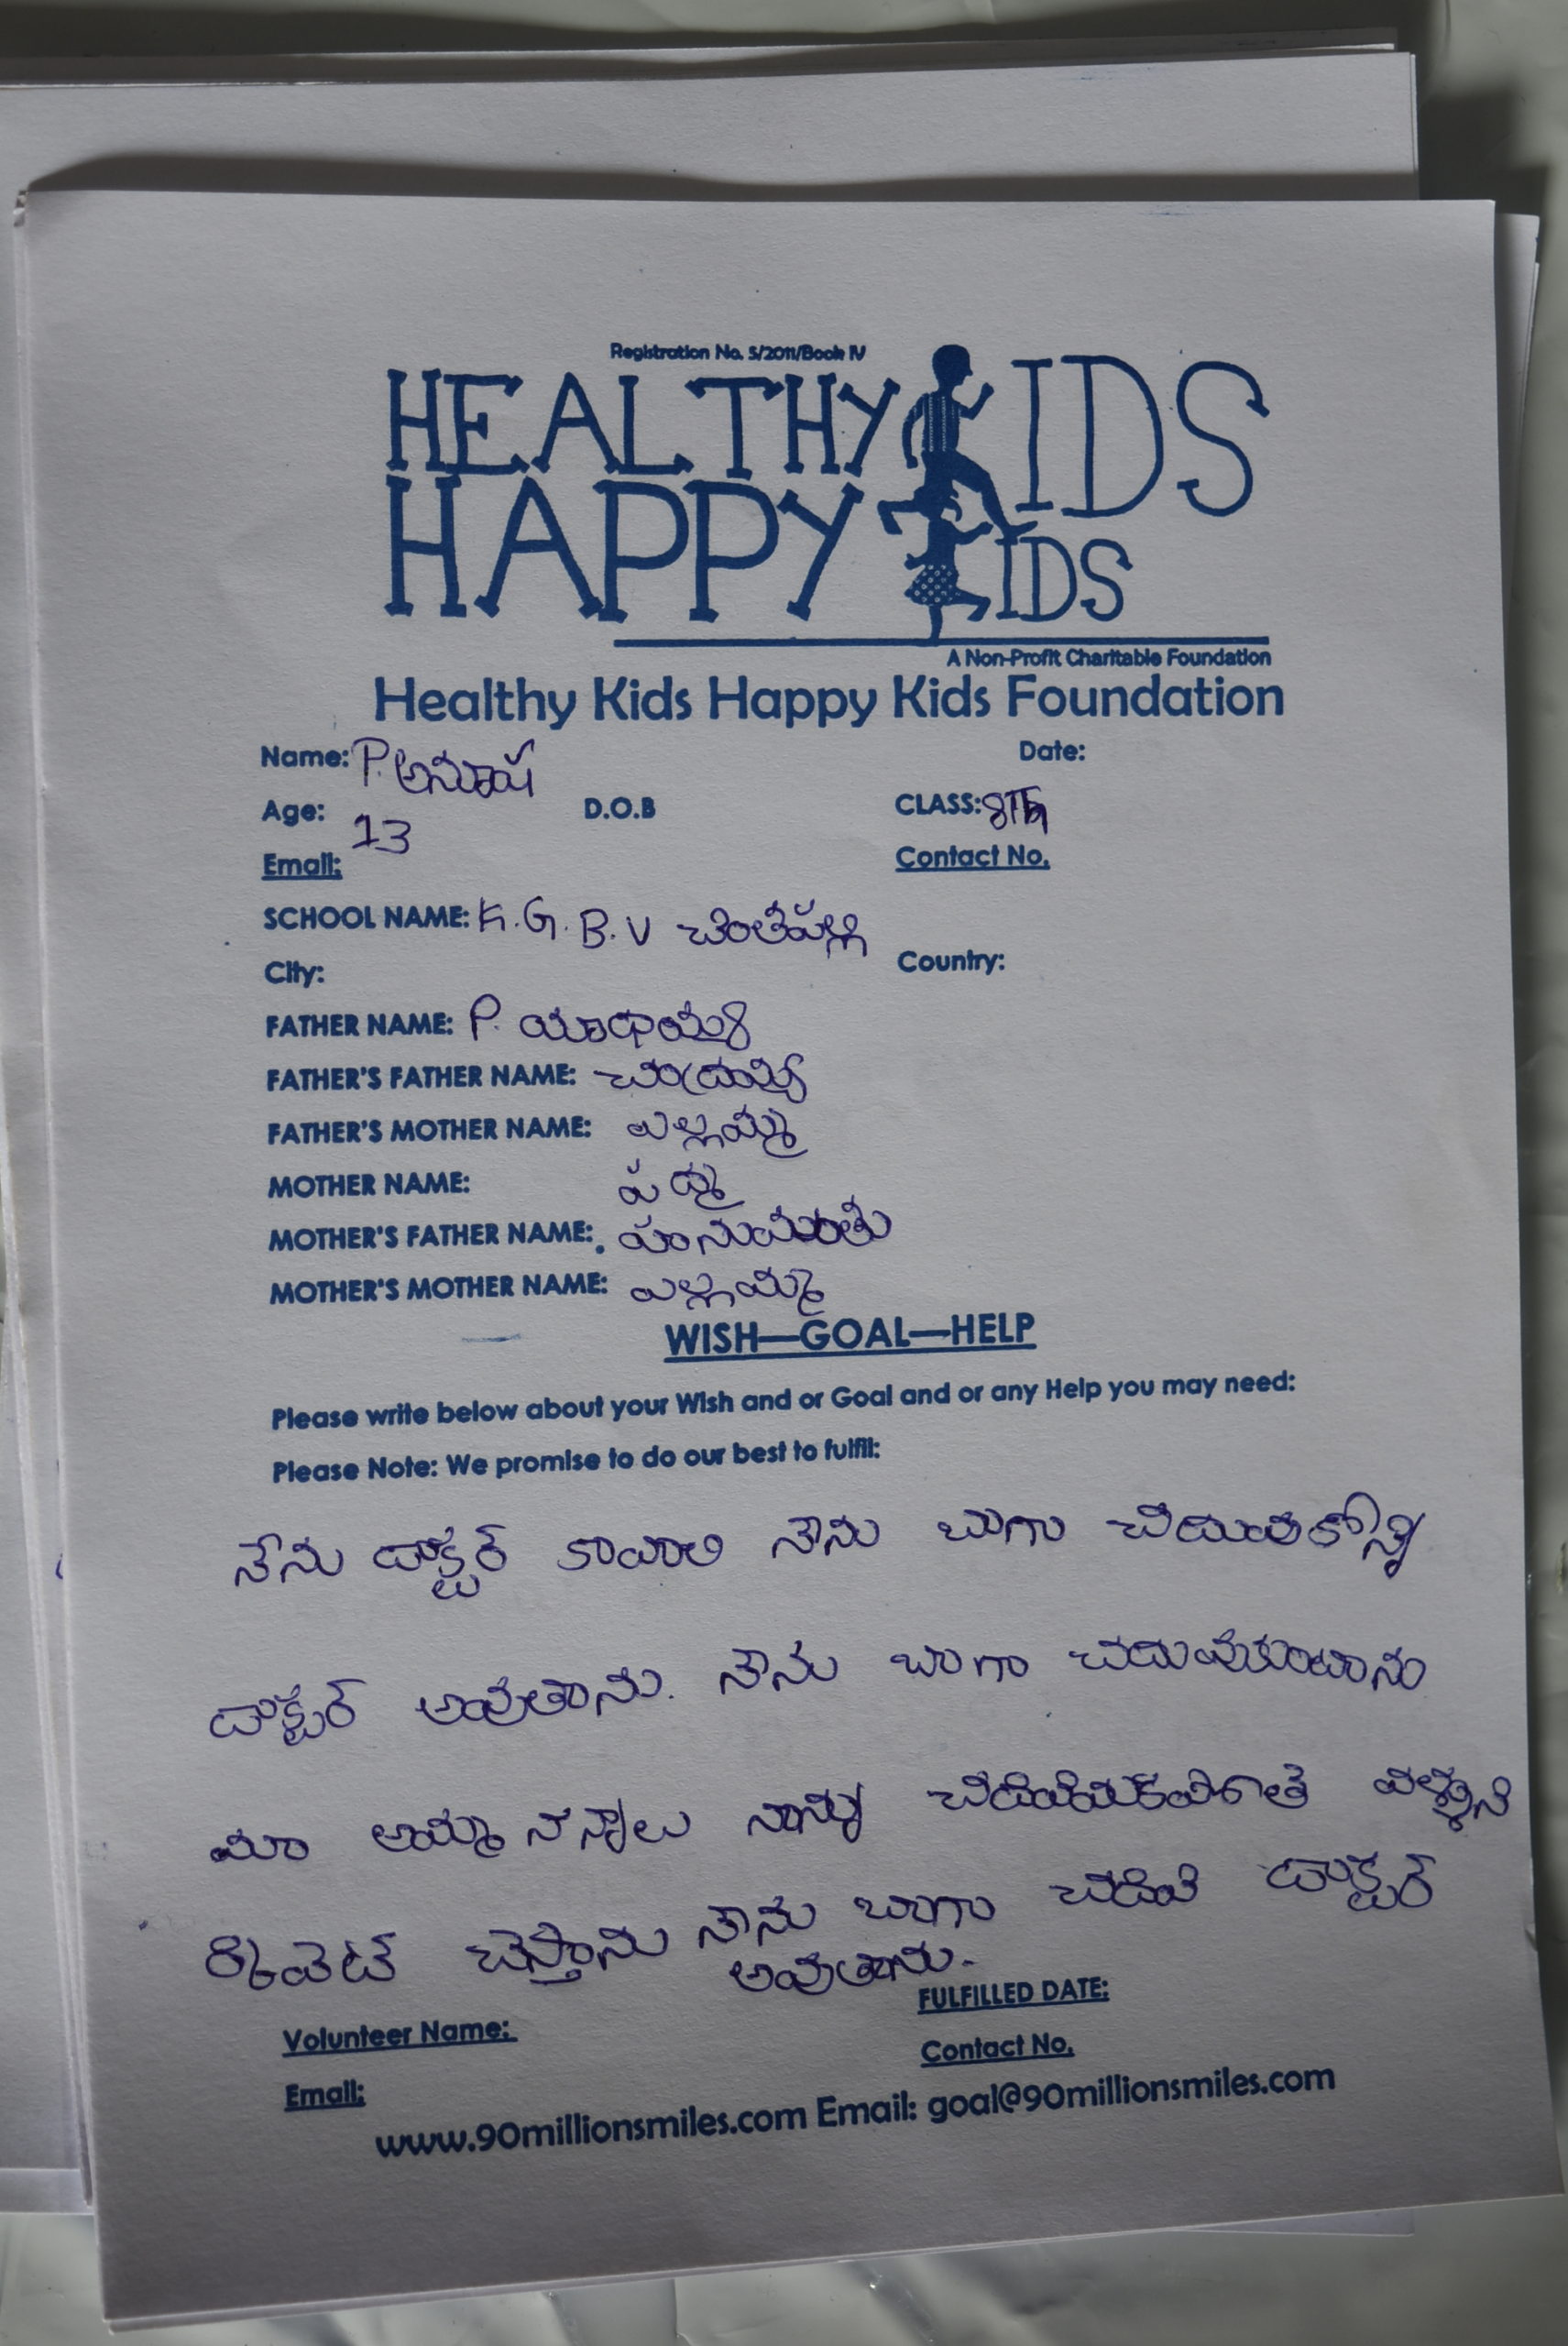 Registration No. 5/2011/Book IV
HEALTHY KIDS
HAPPY KIDS
A Non-Profit Charitable Foundation
Healthy Kids Happy Kids Foundation
Name: P. అనూష Date:
Age: 13 D.O.B CLASS: 8TH
Email: Contact No.
SCHOOL NAME: K.G.B.V చింతపల్లి
City: Country:
FATHER NAME: P.
FATHER'S FATHER NAME: చంద్రయ్య
FATHER'S MOTHER NAME: ఎల్లమ్మ
MOTHER NAME: పద్మ
MOTHER'S FATHER NAME: హనుమంతు
MOTHER'S MOTHER NAME: ఎల్లమ్మ
WISH—GOAL—HELP
Please write below about your Wish and or Goal and or any Help you may need:
Please Note: We promise to do our best to fulfil:
నేను డాక్టర్ కావాలి నేను బాగా
డాక్టర్ అవుతాను. నేను బాగా చదువుకుంటాను
మా అమ్మ నన్నాలు
చెస్తాను నేను బాగా చదివి డాక్టర్
అవుతాను.
FULFILLED DATE:
Volunteer Name:
Contact No.
Email:
www.90millionsmiles.com Email: goal@90millionsmiles.com